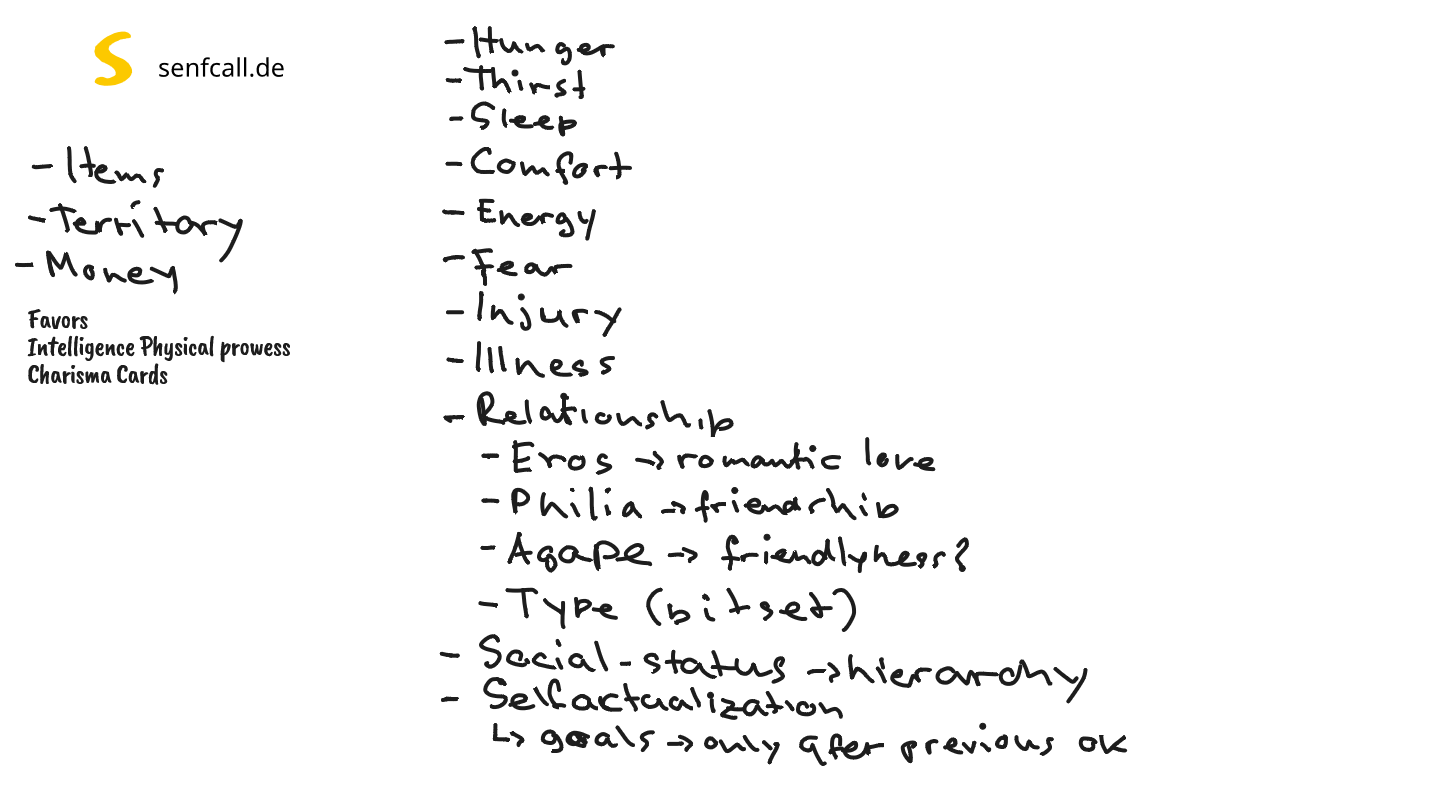 senfcall.de
- Items
- Territory
- Money
Favors
Intelligence Physical prowess
Charisma Cards
- Hunger
- Thirst
- Sleep
- Comfort
- Energy
- Fear
- Injury
- Illness
- Relationship
- Eros → romantic love
- Philia → friendship
- Agape → friendlyness?
- Type (bitset)
- Social-status → hierarchy
- Selfactualization
↳ goals → only after previous ok